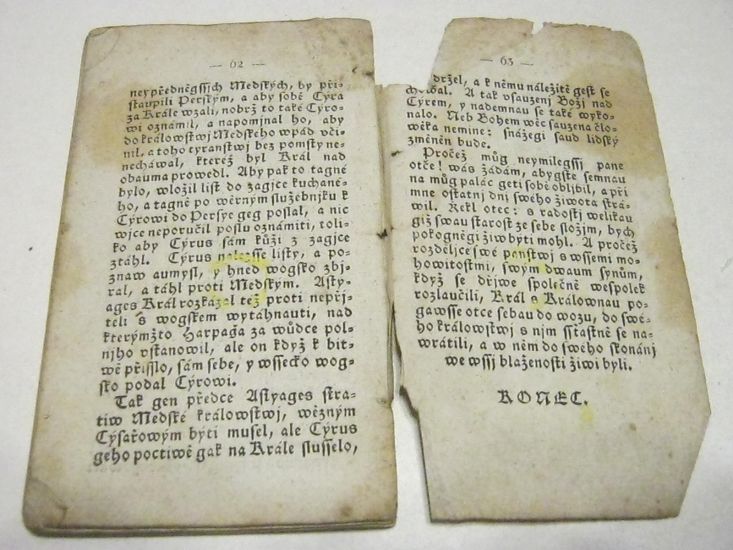 — 62 —
neypředněgssjch Medských, by při-
staupili Perským, a aby sobě Cýra
za Krále wzali, nobrž to také Cýro-
wi oznámil, a napomjnal ho, aby
do králowstwj Medského wpád vči-
nil, a toho cyranstwj bez pomsty ne-
necháwal, kteréž byl Král nad
obauma prowedl. Aby pak to tagné
bylo, wložil list do zagjce kuchané-
ho, a tagně po wěrným služebnjku k
Cýrowi do Persye geg poslal, a nic
wjce neporučil poslu oznámiti, toli-
ko aby Cýrus sám kůži z zagjce
ztáhl. Cýrus nalezsse listy, a po-
znaw aumysl, y hned wogsko zbj-
ral, a táhl proti Medským. Asty-
ages Král rozkázal též proti nepřj-
teli s wogskem wytáhnauti, nad
kterýmžto Harpaga za wůdce pol-
njho vstanowil, ale on když k bit-
wě přisslo, sám sebe, y wssecko wog-
sko podal Cýrowi.
Tak gen předce Astyages stra-
tiw Medské králowstwj, wězným
Cýsařowým býti musel, ale Cýrus
geho poctiwě gak na Krále slusselo,
— 63 —
držel, a k němu náležitě gest se
chowal. A tak vsauzenj Božj nad
Cýrem, y nademnau se také wyko-
nalo. Neb Bohem wěc sauzena člo-
wěka nemine: snázegi saud lidský
změněn bude.
Pročež můg neymilegssj pane
otče! wás žádám, abygste semnau
na můg palác geti sobě obljbil, a při
mne ostatnj dni swého žiwota strá-
wil. Řekl otec: s radostj welikau
giž swau starost ze sebe složjm, bych
pokogněgi žiw býti mohl. A pročež
rozděljce swé panstwj s wssemi mo-
howitostmi, swým dwaum synům,
když se dřjwe společně wespolek
rozlaučili, Král s Králownau po-
gawsse otce sebau do wozu, do swé-
ho králowstwj s njm sstastně se na-
wrátili, a w něm do swého skonánj
we wssj blaženosti žiwi byli.
KONEC.